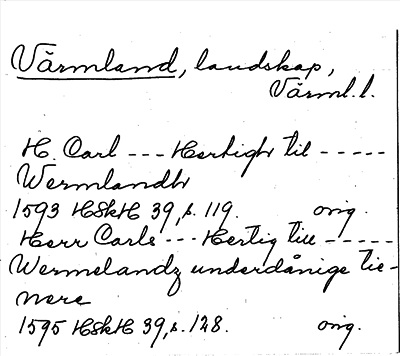 Värmland, landskap,
Värml.l.
H. Carl --- Hertigh til -----
Wermlandh
1593 HSkH 39, s. 119. orig.
Herr Carls --- Hertig till -----
Wermelandz underdånige tie-
nere
1595 HSkH 39, s. 128. orig.